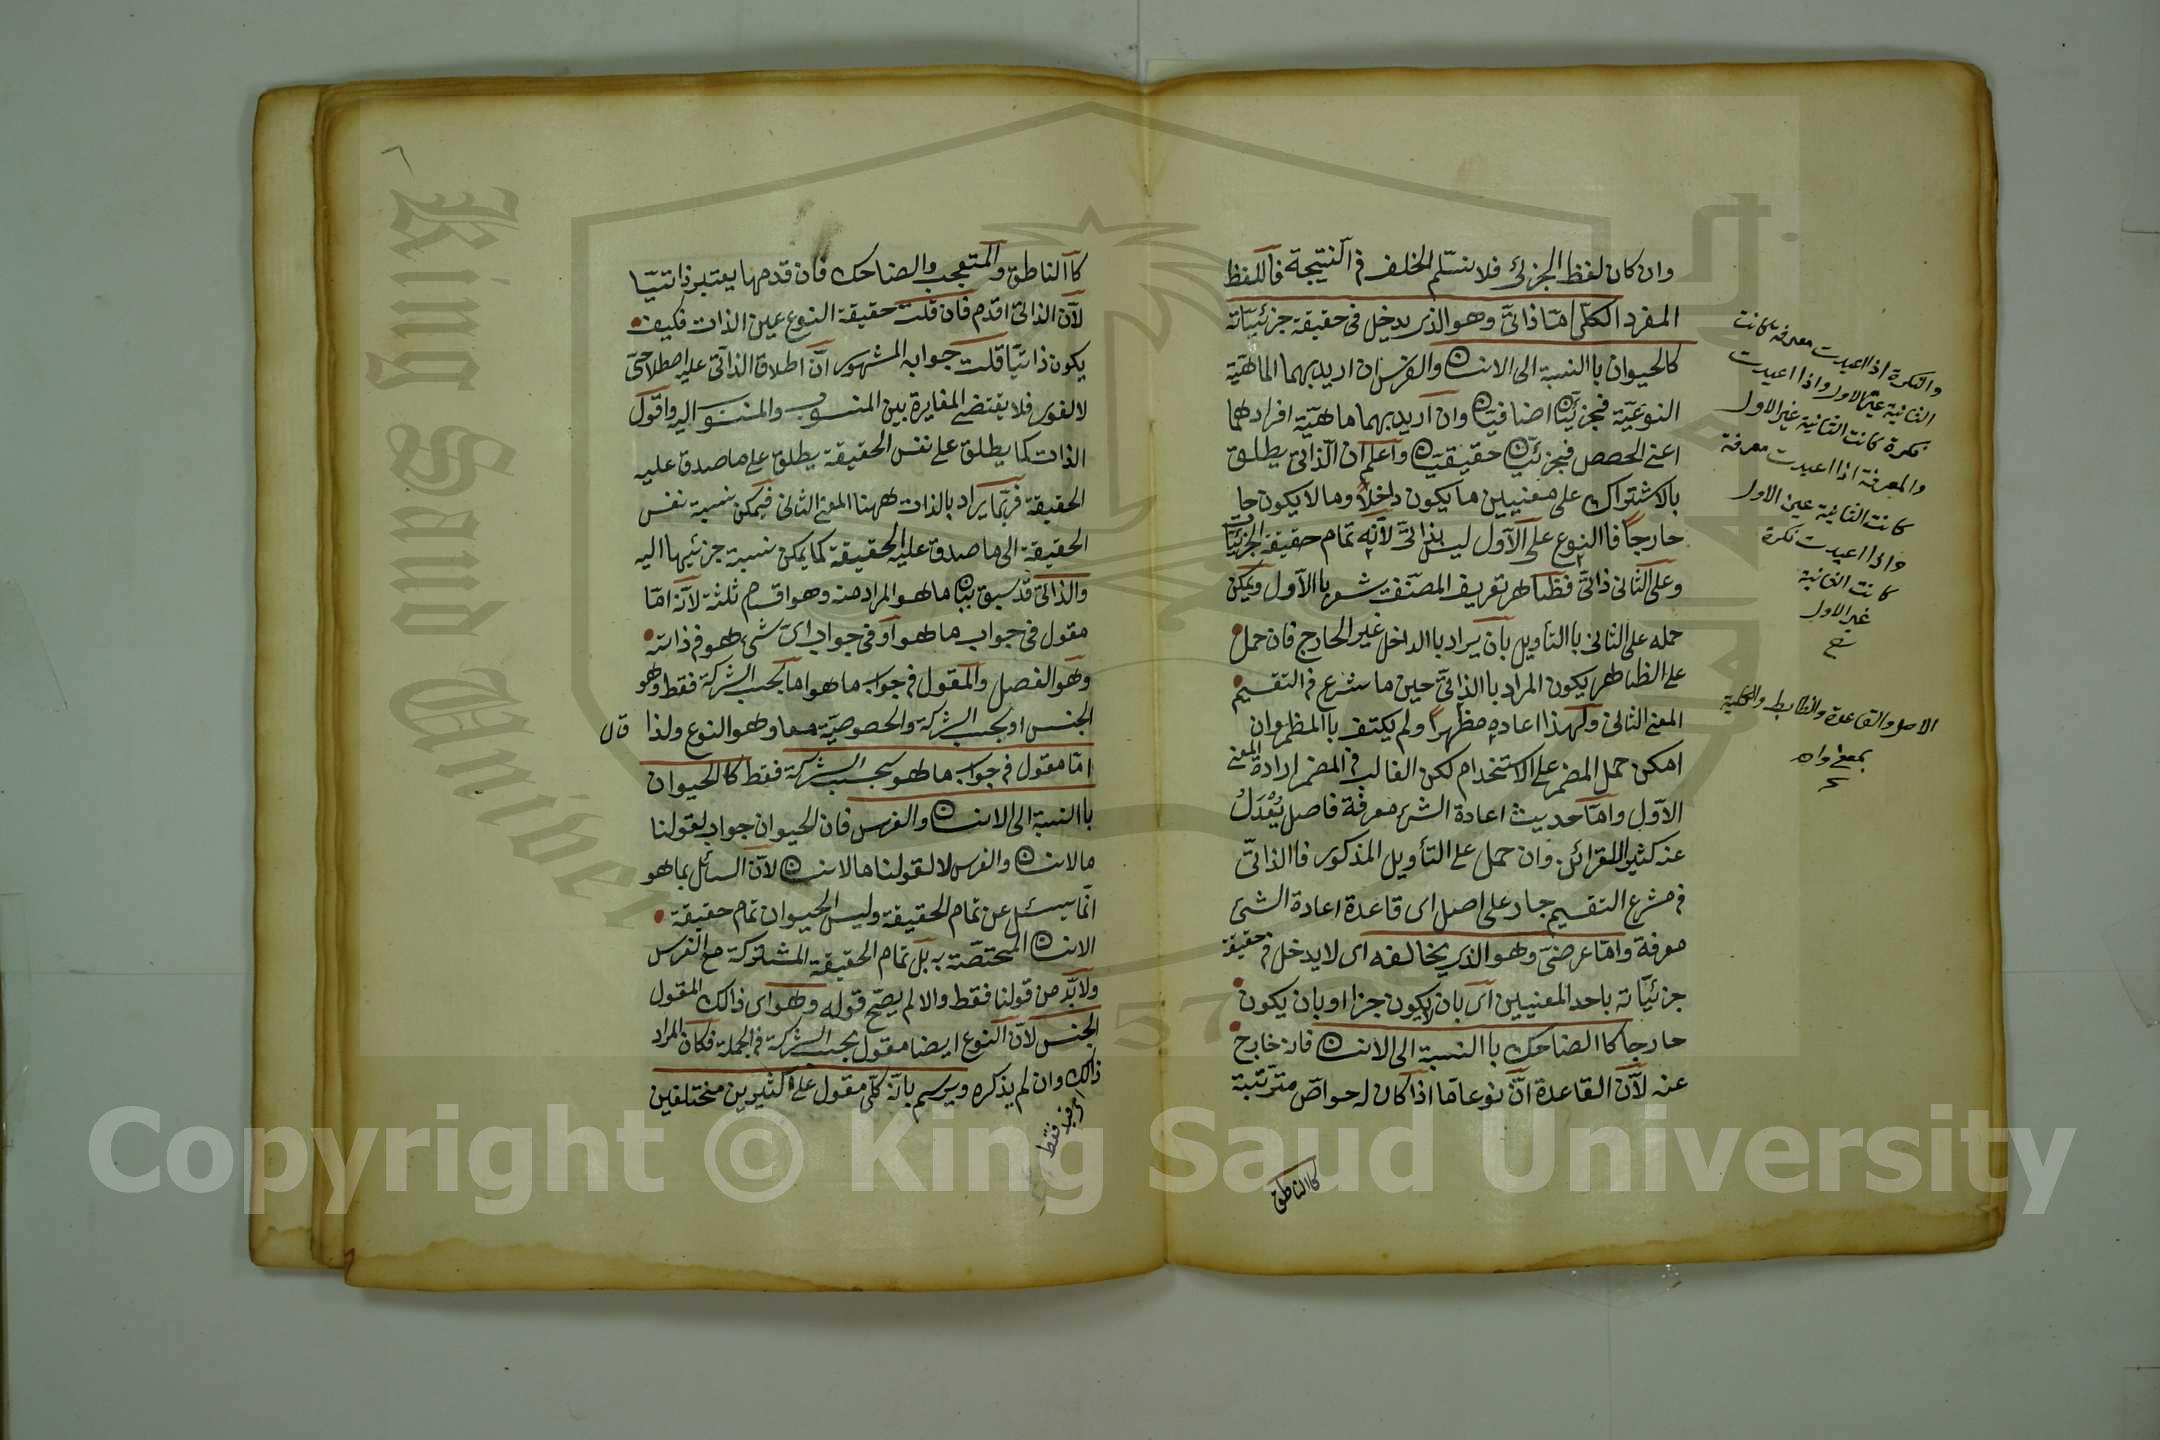 وان كان لفظ الجزئى فلا نسلم الخلف فى النتيجة فاللفظ
المفرد الكلى اما ذاتى وهو الذى يدخل فى حقيقة جزئياته
كالحيوان باالنسبة الى الانسان والفرس ان اريد بهما الماهية
النوعية فجزئيان اضافيان وان اريد بهما ماهية افرادهما
اعنى الحصص فجزئيان حقيقيان واعلم ان الذاتى يطلق
بالاشتراك على معنيين ما يكون داخلا وما لا يكون حا
خارجا فاالنوع على الاول ليس بذاتى لانه تمام حقيقة الجزئيات
وعلى الثانى ذاتى فظاهر تعريف المصنف يشعر باالاول ويمكن
حمله على الثانى باالتأويل بان يراد باالداخل غير الخارج فان حمل
على الظاهر يكون المراد باالذاتى حين ما شرع فى التقسيم
المعنى الثانى ولهذا اعاده مظهرا ولم يكتف باالمظمر وان
امكن حمل المضمر على الاستخدام لكن الغالب فى المضمر ارادة المعنى
الاول واما حديث اعادة الشئ معرفة فاصل يعدل
عنه كثيرا للقرائن وان حمل على التأويل المذكور فاالذاتى
فى مشرع التقسيم جار على اصل اى قاعدة اعادة الشئ
معرفة واما عرضى وهو الذى يخالفه اى لا يدخل فى حقيقة
جزئياته باحد المعنيين اى بان لا يكون جزا او بان يكون
خارجا كاالضاحك باالنسبة الى الانسان فانه خارج
عنه لان القاعدة ان نوعا ما اذا كان له خواص مترتبة
كاالناطق
والنكرة اذا اعيدت معرفة كانت
الثانية عين الاول واذا اعيدت
نكرة كانت الثانية غير الاول
والمعرفة اذا اعيدت معرفة
كانت الثانية عين الاول
واذا اعيدت نكرة
كانت الثانية
غير الاول
الاصل والقاعدة والضابط والكلية
بمعنى واحد
كاالناطق والمتعجب والضاحك فان قدمها يعتبر ذاتيا
لان الذاتى اقدم فان قلت حقيقة النوع عين الذات فكيف
يكون ذاتيا قلت جوابه المشهور ان اطلاق الذاتى عليه اصطلاحى
لا لغوى فلا يقتضى المغايرة بين المنسوب والمنسوب اليه واقول
الذات كما يطلق على نفس الحقيقة يطلق على ما صدق عليه
الحقيقة فربما يراد بالذات ههنا المعنى الثانى فيمكن نسبة نفس
الحقيقة الى ما صدق عليه الحقيقة كما يمكن نسبة جزئيها اليه
والذاتى قد سبق بيان ما هو المراد منه وهو اقسام ثلثة لانه اما
مقول فى جواب ما هو او فى جواب اى شئ هو فى ذاته
وهو الفصل والمقول فى جواب ما هو اما بحسب الشركة فقط وهو
الجنس او بحسب الشركة والخصوصية معا وهو النوع ولذا قال
اما مقول فى جواب ما هو بحسب الشركة فقط كاالحيوان
باالنسبة الى الانسان والفرس فان الحيوان جواب لقولنا
ما الانسان والفرس لا لقولنا ما الانسان لان السائل بما هو
انما يسئل عن تمام الحقيقة وليس الحيوان تمام حقيقة
الانسان المختصة به بل تمام الحقيقة المشتركة مع الفرس
ولا بد من قولنا فقط والا لم يصح قوله وهو اى ذالك المقول
الجنس لان النوع ايضا مقول بحسب الشركة فى الجملة فكان المراد
ذالك وان لم يذكره ويرسم بانه كلى مقول على كثيرين مختلفين
اى قيد فقط
Copyright © King Saud University
King Saud University
1957